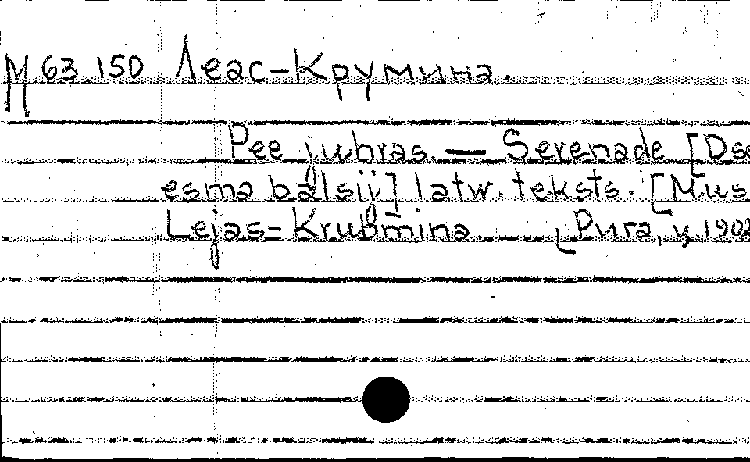 М 63.150 Леас-Крумина.
Pee juhras. — Serenade [Dse
esma balsij] latw. teksts. [Mus
Lejas-Kruhmina [Рига, ц. 1902